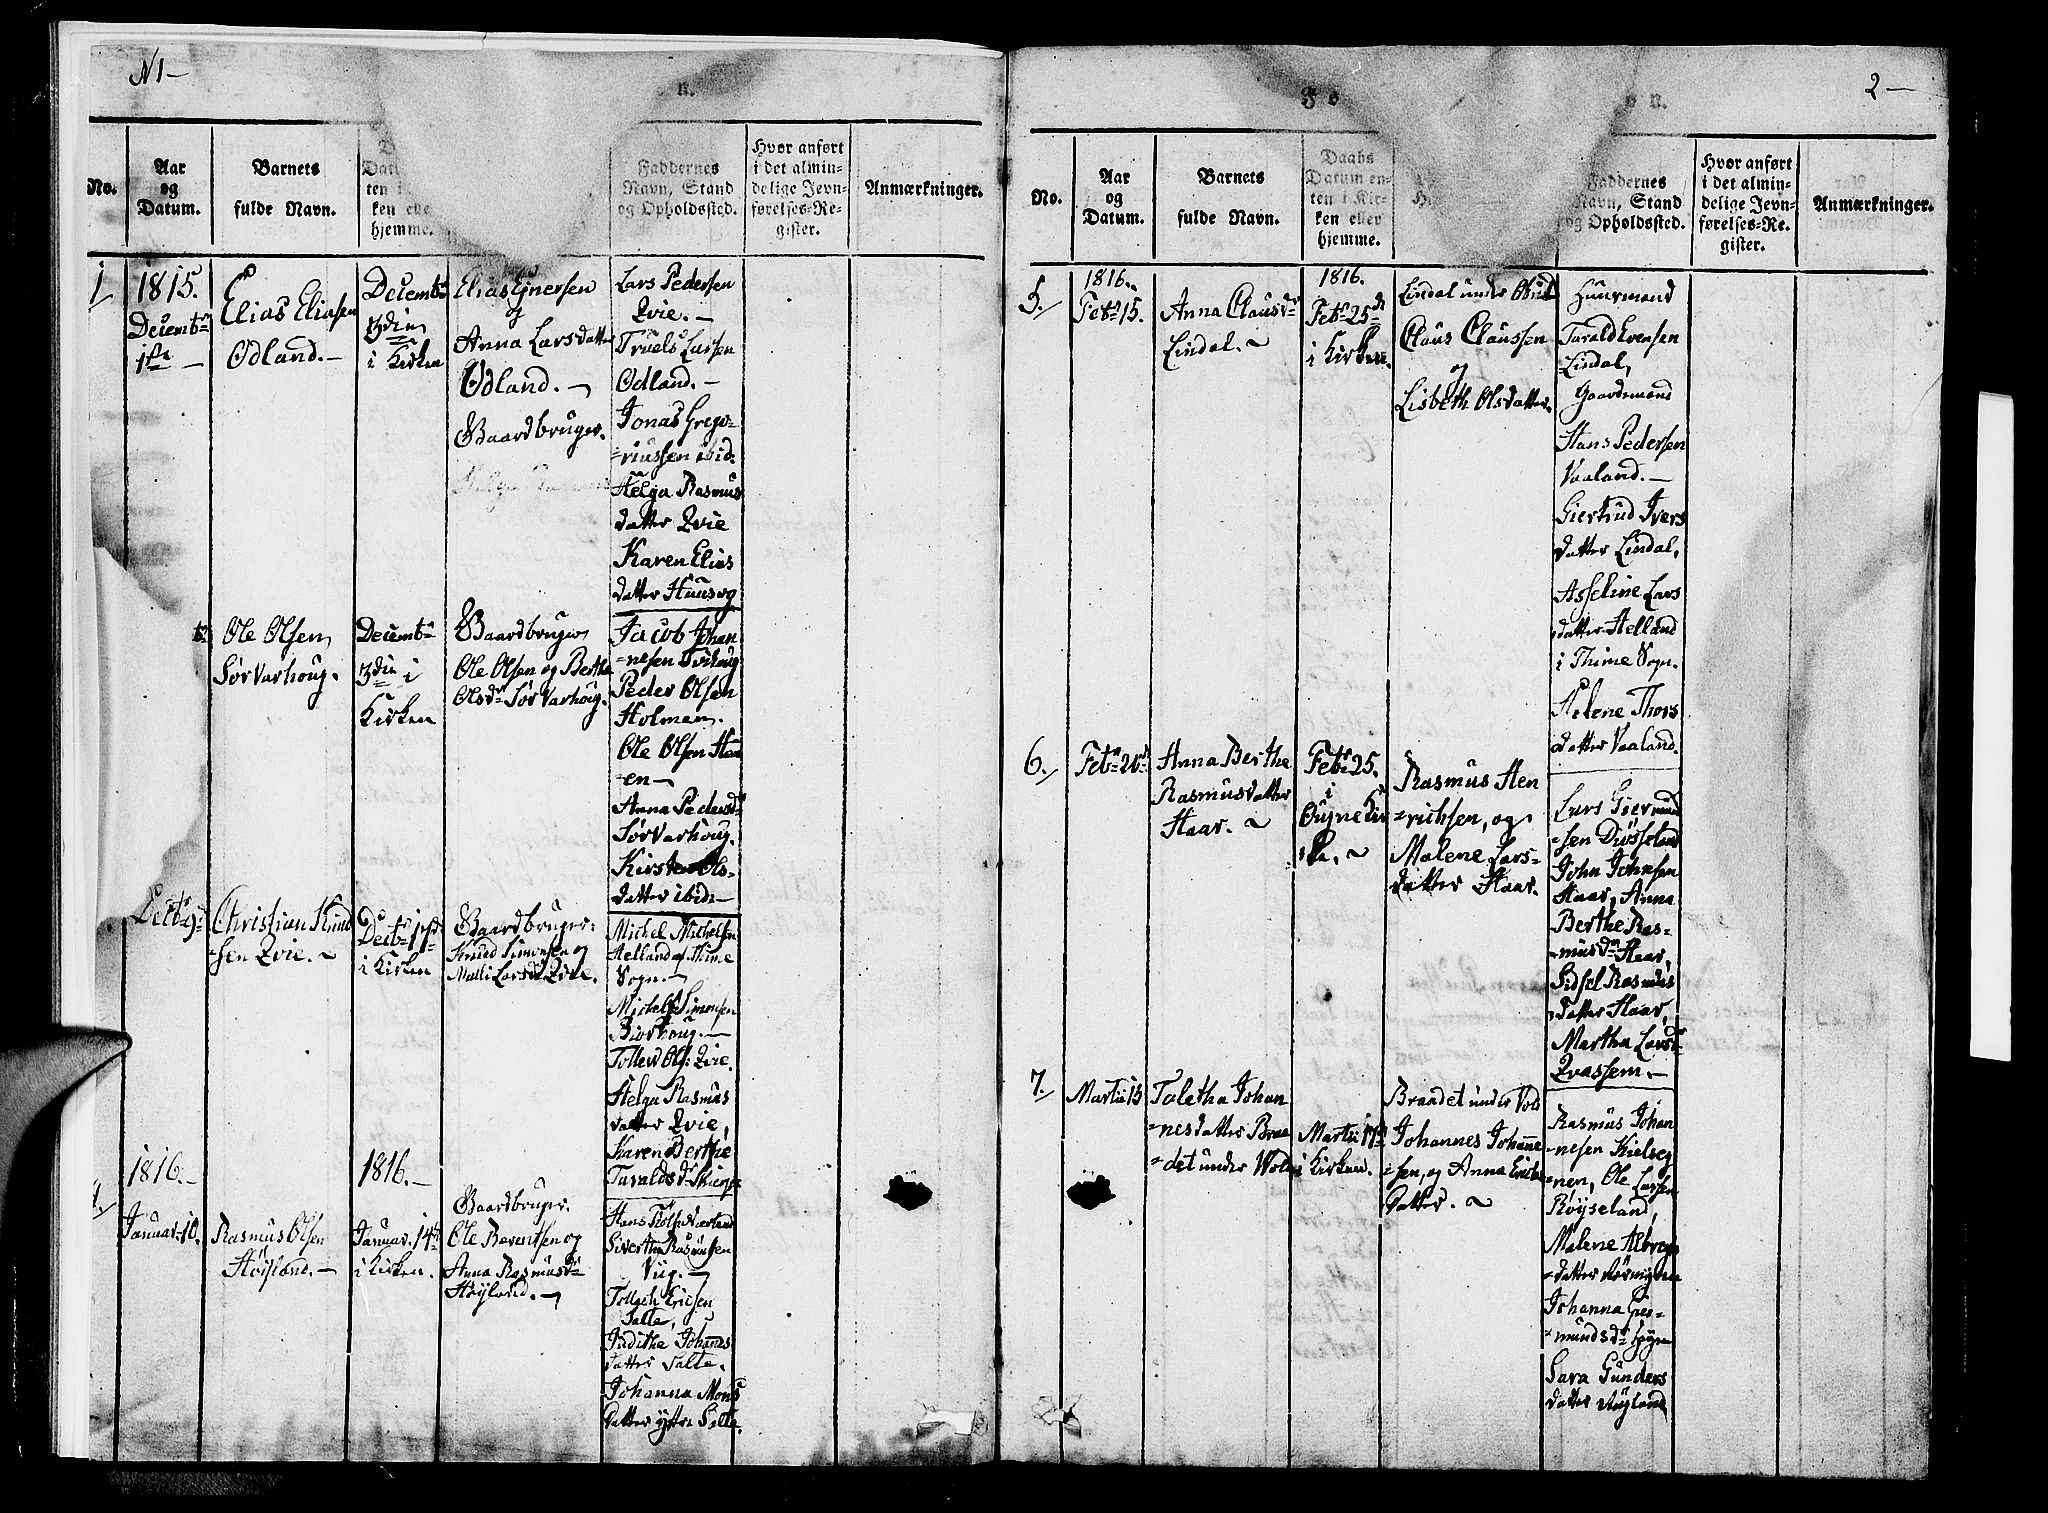 N1 —
n.
No.
Aar
og
Datum.
Barnets
fulde Navn.
D
Datum
ten i
ken eller
hjemme.
Faddernes
Navn, Stand
og Opholdssted.
Hvor anført
i det almin-
delige Jevn-
førelses-Re-
gister.
Anmærkninger.
1
1815.
Decembr
1ste —
Elias Eliasen
Odland. —
Decembr
3die
i Kirken
Elias Ejnersen
og
Anna Larsdatter
Odland. —
Gaardbruger.
Lars Pedersen
Qvie. —
Truels Larsen
Odland. —
Jonas Grego-
=riussen ibid:
Helga Rasmus
datter Qvie
Karen Elias
datter Huusog
Ole Olsen
Sør Varhoug.
Decembr
3die i
Kirken
Gaardbruger
Ole Olsen og Berthe
Olsdr Sør Varhoug.
Jacob Johan
=nesen
Peder Olsen
Holmen.
Ole Olsen
=en —
Anna Pedersdr
Sør Varhoug.
Kirsten Ols-
datter ibid: —
Decbr 9de
Christian Knud
=sen Qvie. ~
Decbr 17de
i Kirken
Gaardbruger:
Knud Simonsen og
Malli Larsdr Qvie.
Michel Michelsen
Helland af Thime
Sogn. —
Michel Simonsen
Biorhoug. —
Tollev Ols: Qvie.
Helga Rasmus
datter Qvie,
Karen Berthe
Taraldsdr
1816. —
1816. —
Januar 10.
Rasmus Olsen
Høiland. —
Januar. 14de
i Kirken.
Gaardbruger.
Ole Berentsen og
Anna Rasmusdr
Høyland. —
Hans
Sivert Rasmusen
Viig. —
Tollach Ericsen
Salte,
Judithe Johannes
datter Salte.
Johanna Mons
datter yttre Salte.
2 —
Fo
n.
No.
Aar
og
Datum.
Barnets
fulde Navn.
Daabs
Datum en-
ten i Kir-
ken eller
hjemme.
Faddernes
Navn, Stand
og Opholdssted.
Hvor anført
i det almin-
delige Jevn-
førelses-Re-
gister.
Anmærkninger.
5.
1816.
Febr 15.
Anna Clausdr
Lindal. ~
1816.
Febr 25de
i Kirken.
Lindal under
Claus Claussen
og
Lisbeth Olsdatter.
Huusmand
Tarald Evensen
Lindal,
Gaardmand
Hans Pedersen
Vaaland. —
Giertrud Ivers
datter Lindal,
Asseline Lars
datter Helland
i Thime Sogn.
Helene Thors
datter Vaaland.
6.
Febr 20de
Anna Berthe
Rasmusdatter
Haar. ~
Febr 25.
i
Ougne Kir
=ke. ~
Rasmus Hen
=richsen, og
Malene Lars-
datter Haar.
Lars Giermund
=sen Dusseland
John Johnsen
Haar, Anna
Berthe Ras-
=musdr Haar,
Sidsel Rasmus
datter Haar,
Martha Larsdr
Qvassem. —
7.
Martii 15
Taletha Johan
=nesdatter Braa
=det under Wold
Martii 17de
i Kirken.
Braadet under Vold
Johannes Johanne
=sen, og Anna
datter. ~
Rasmus Johan
=nesen
=nen, Ole Larsen
Røyseland,
Malene
=datter
Johanna Gier-
=mundsdr
Sara Gunders
datter